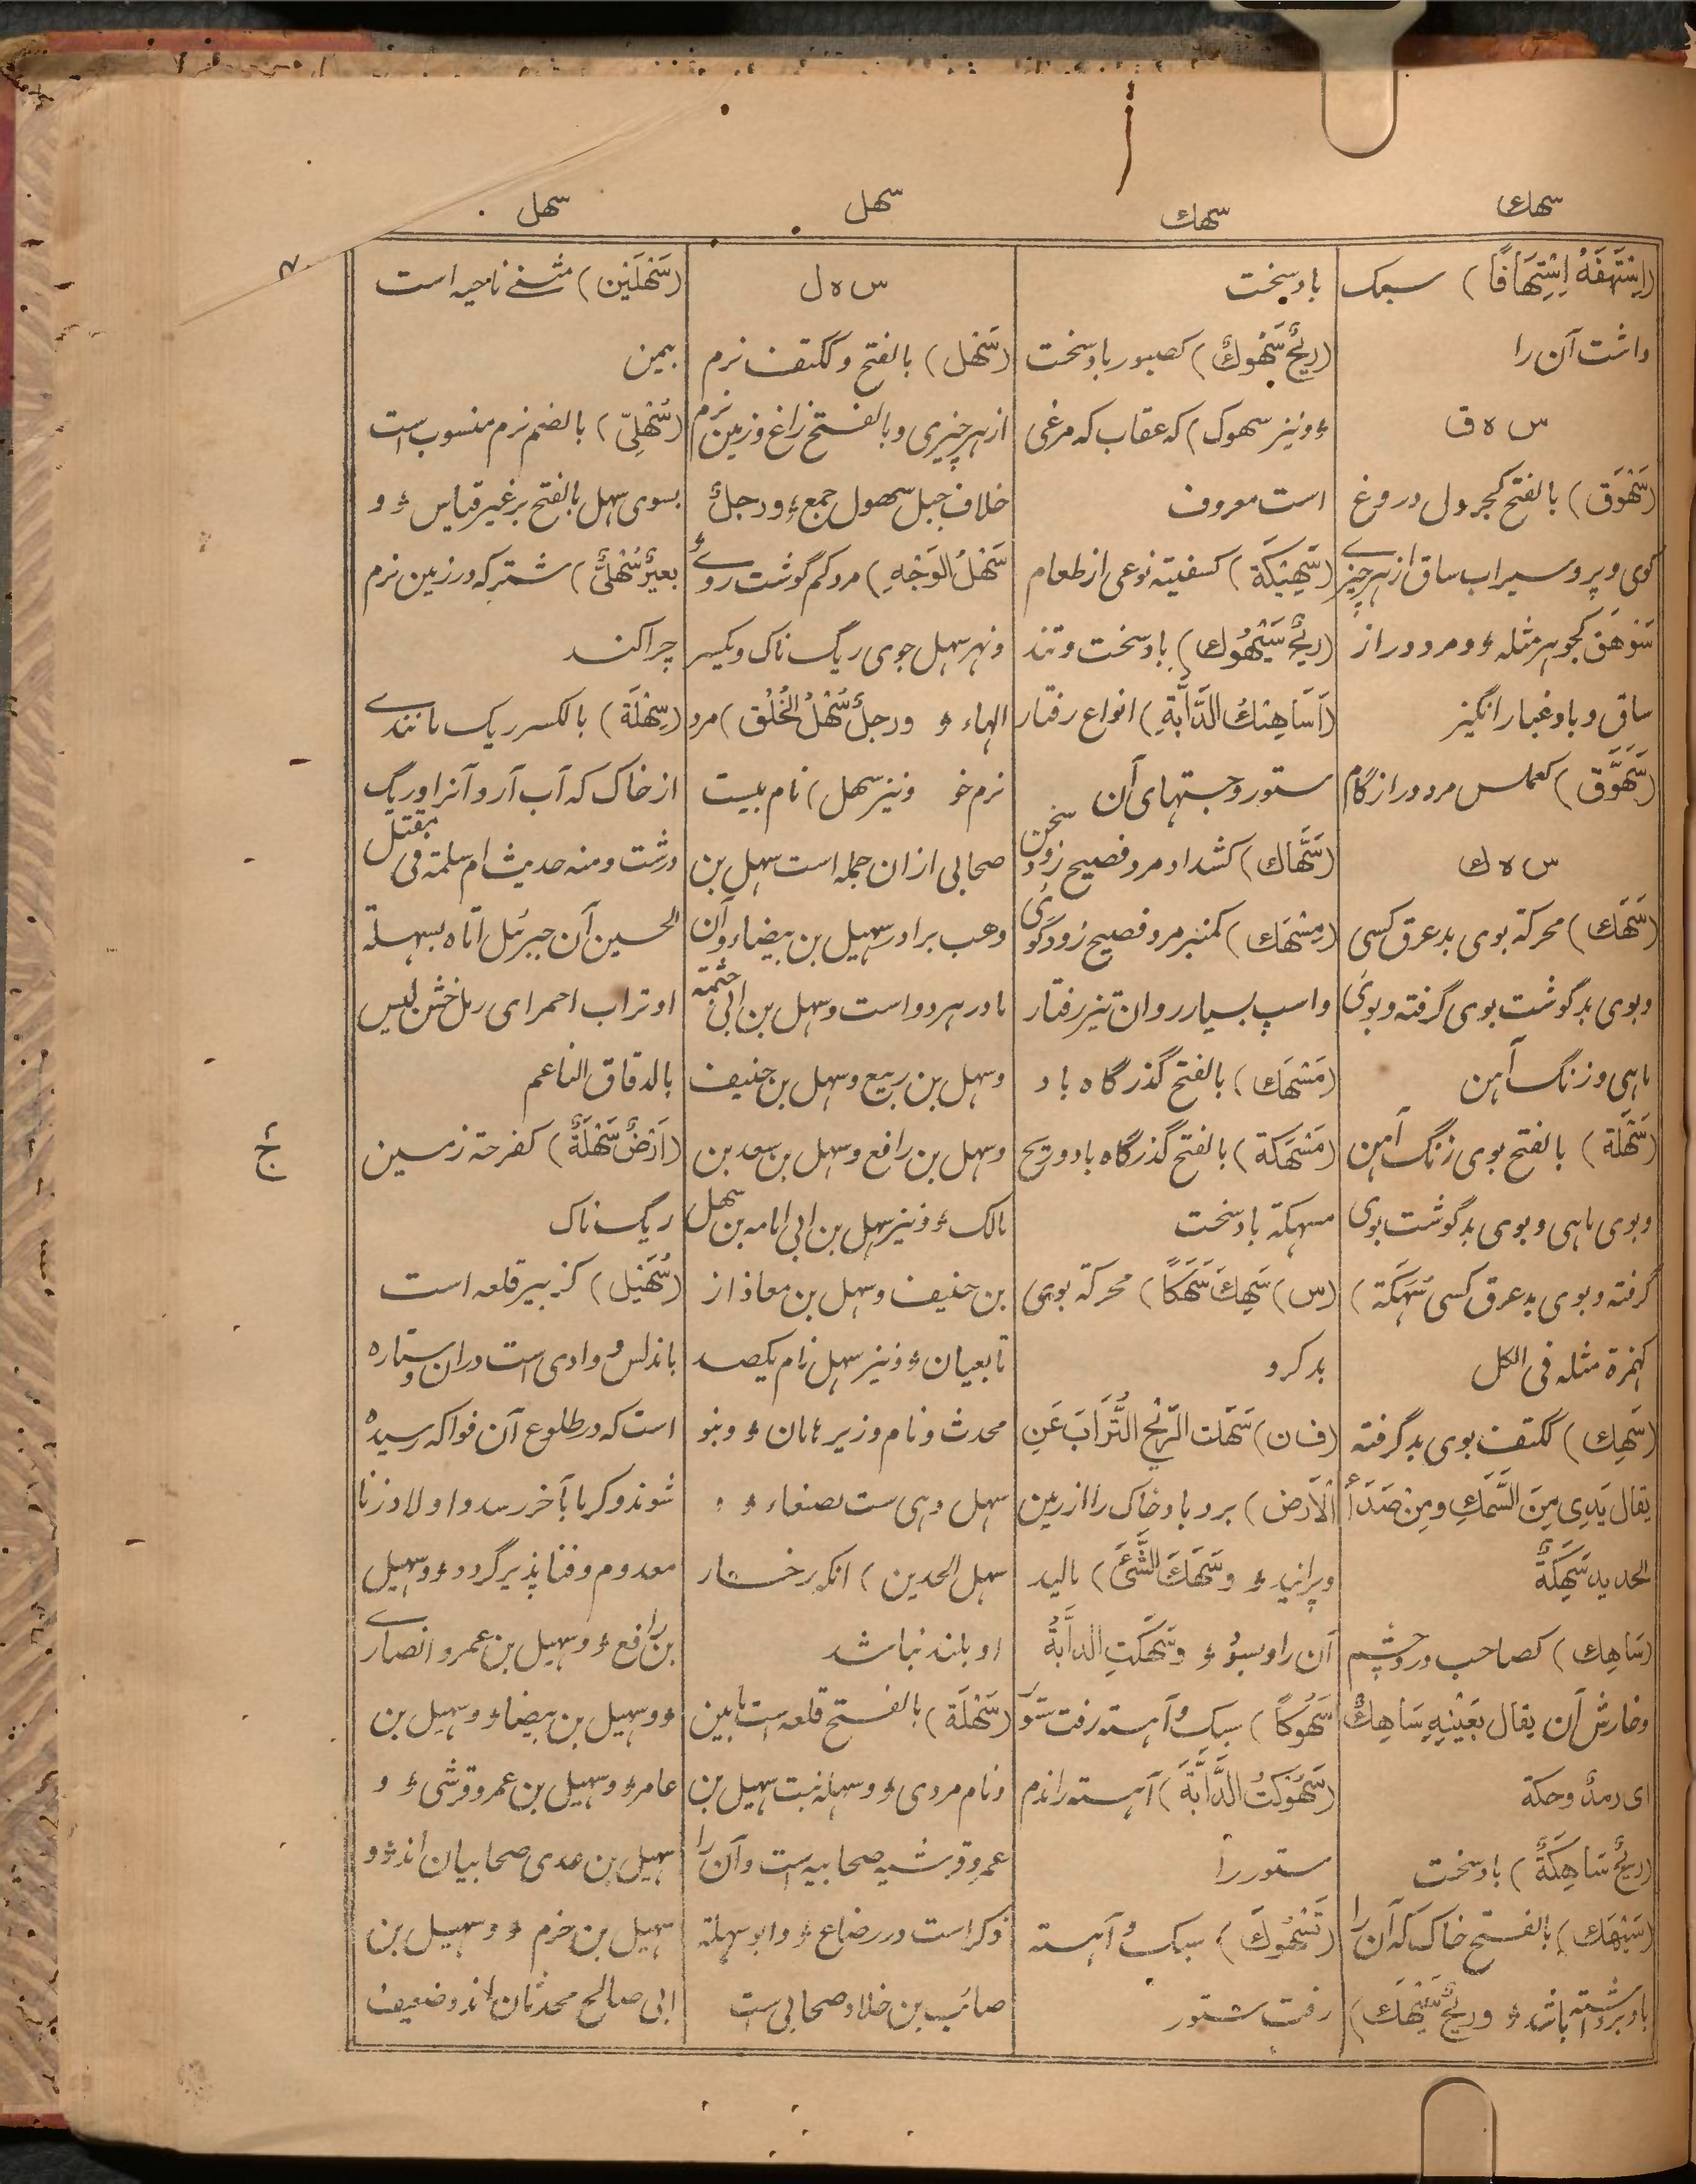 سهك
سهك
سهل
سهل
(اِسْتَهَفَهُ اِسْتِهَافًا) سبک
داشت آن را
س ه ق
(سَهْوَق) بالفتح کجرول دروغ
گوی و پر و سیراب ساق از هر چیزے
سَوْهَق کجوهر مثله ؤ و مرد دراز
ساق و باد غبار انگیز
(سَهَوَّق) کعملس مرد دراز گام
س ه ك
(سَهَك) محرکة بوی بد عرق کسی
و بوی بد گوشت بوی گرفته و بوی
ماهی و زنگ آهن
(سَهْكَة) بالفتح بوی زنگ آهن
و بوی ماهی و بوی بد گوشت بوی
گرفته و بوی بد عرق کسی سُهَكَة)
کهمزة مثله فی الکل
(سَهِك) ککتف بوی بد گرفته
یقال یَدِی مِنَ السَّمَكِ و مِنْ صَدَأِ
الحدید سَهِكَةٌ
(سَاهِك) کصاحب درد چشم
و خارش آن یقال بِعَیْنِهِ سَاهِكٌ
ای رمدٌ و حكة
(ریحٌ سَاهِكَةٌ) باد سخت
(سَيْهَك) بالفتح خاک که آن را
باد برداشته باشد ؤ و ریحٌ سَیْهَك)
باد سخت
(ریحٌ سَهُوكٌ) کصبور باد سخت
ؤ و نیز سهوک) که عقاب که مرغی
است معروف
(سَهِيْكَة) کسفینه نوعی از طعام
(ریحٌ سَيْهُوك) باد سخت و تند
(اَسَاهِيْكُ الدَّابَّةِ) انواع رفتار
ستور و جستهای آن
(سَهَّاك) کشداد مرد فصیح زود سخن
(مِسْهَك) کمنبر مرد فصیح زود گوی
و اسپ بسیار روان تیز رفتار
(مَسْهَك) بالفتح گذرگاه باد
(مَسْهَكَة) بالفتح گذرگاه باد و ریح
مسهکة باد سخت
(س) سَهِكَ سَهَكًا) محرکة بوی
بد کرد
(ف ن) سَهَكَت الرِّیْحُ التُّرَابَ عَنِ
الْاَرْضِ) برد باد خاک را از زمین
و پرانید ؤ و سَهَكَ الشَّیْءَ) مالید
آن را و سبو ؤ و سَهَكَتِ الدابَّةُ
سُهُوكًا) سبک و آهسته رفت ستور
(سَهُوْكَتُ الدَّابَّةَ) آهسته راندم
ستور را
(تَسْهُوكَ) سبک و آهسته
رفت ستور
س ه ل
(سَهْل) بالفتح و ککتف نرم
از هر چیزی و بالفتح زاغ و زمین نرم
خلاف جبل سهول جمع ؤ و رجلٌ
سَهْلُ الوَجْهِ) مرد کم گوشت روے ؤ
و نهر سهل جوی ریگ ناک و یکسر
الهاء ؤ و رجلٌ سَهْلُ الخُلُق) مرد
نرم خو و نیز سهل) نام بیست
صحابی از ان جمله است سهل بن
وهب برادر سهیل بن بیضاء و آن
مادر هر دو است و سهل بن ابی حثمة
و سهل بن ربیع و سهل بن حنیف
و سهل بن رافع و سهل بن سعد بن
مالک ؤ و نیز سهل بن ابی امامه بن سهل
بن حنیف و سهل بن معاذ از
تابعیان ؤ و نیز سهل نام یکصد
محدث و نام وزیر مامان ؤ و بنو
سهل دهی ست بصنعاء ؤ و
سهل الخدین) آنکه رخسار
او بلند نباشد
(سَهْلَة) بالفتح قلعه ست بابین
و نام مردی ؤ و سهله بنت سهیل بن
عمرو قرشیه صحابیه است و آن را
ذکر است در رضاع ؤ و ابو سهلة
صائب بن خلاد صحابی ست
(سَهْلَيْن) مثنے ناحیه است
بیمن
(سُهْلِیّ) بالضم نرم منسوب است
بسوی سهل بالفتح بر غیر قیاس ؤ و
بعیرٌ سُهْلِیٌّ) شتر که در زمین نرم
چرا کند
(سِهْلَة) بالکسر ریگ مانندے
از خاک که آب آرد آنرا و ریگ
درشت و منه حدیث ام سلمة فی مقتل
الحسین آن جبرئل اتاه بسهلة
او تراب احمر ای رمل خشن لیس
بالدقاق الناعم
(اَرْضٌ سَهْلَةٌ) کفرحة زمین
ریگ ناک
(سُهَيْل) کزبیر قلعه است
باندلس و وادی ست دران و ستاره
است که در طلوع آن فواکه رسیده
شوند و گرما بآخر رسد و اولاد زنا
معدوم و فنا پذیر گردد ؤ و سهیل
بن رافع ؤ و سهیل بن عمرو انصارے
ؤ و سهیل بن بیضاء ؤ و سهیل بن
عامر ؤ و سهیل بن عمرو قرشی ؤ و
سهیل بن عدی صحابیان اند ؤ و
سهیل بن حزم ؤ و سهیل بن
ابی صالح محدثان اند و ضعیف
ج